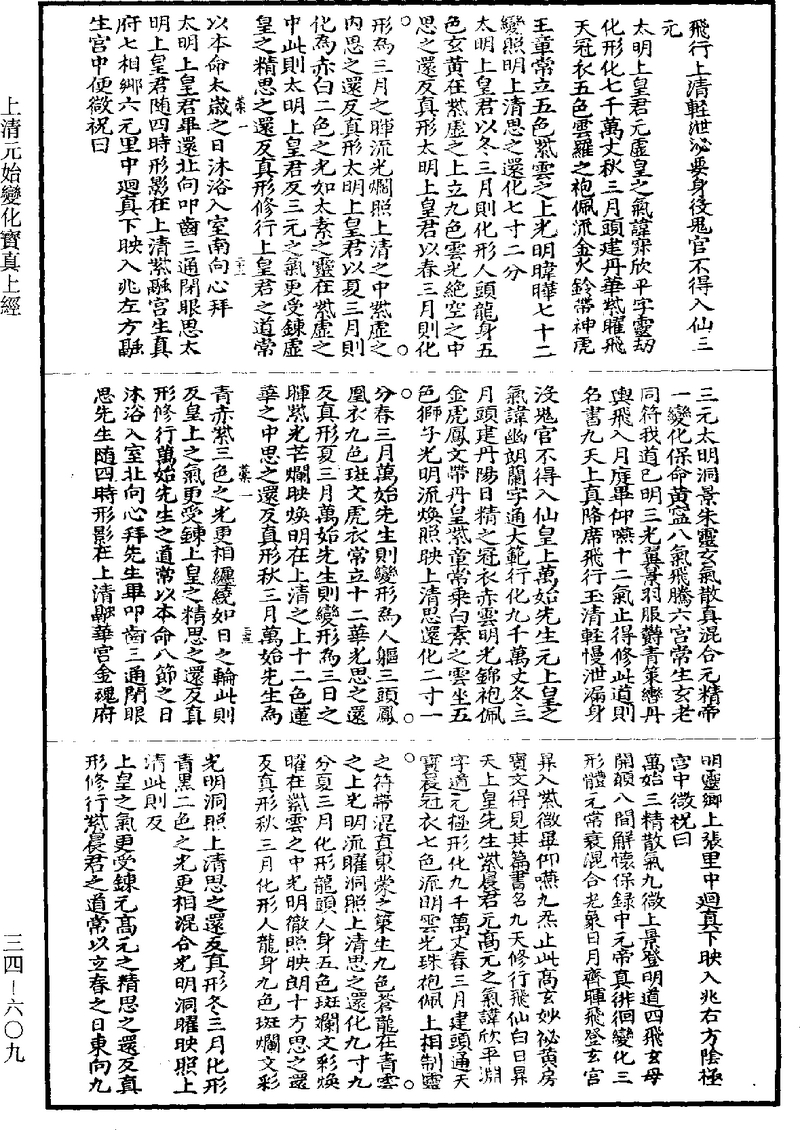 飛行上清輕泄泌要身後鬼官不得入仙三
元
太明上皇君元虛皇之氣諱寀欣平字靈劫
化形化七千萬丈秋三月頭建丹華紫曜飛
天冠衣五色雲羅之袍佩流金火鈴帶神虎
王章常立五色紫雲之上光明暐曄七十二
變照明上清思之還化七寸二分
太明上皇君以冬三月則化形人頭龍身五
色玄黃在紫虛之上立九色雲光絕空之中
思之還反真形太明上皇君以春三月則化
形為三月之暉流光爛照上清之中紫虛之
內思之還反真形太明上皇君以夏三月則
化為赤白二色之光如太素之靈在紫虛之
中此則太明上皇君反三元之氣更受鍊虛
皇之精思之還反真形修行上皇君之道常
藁一
二十二
以本命太歲之日沐浴入室南向心拜
太明上皇君畢還北向叩齒三通閉眼思太
明上皇君隨四時形影在上清紫融宮生真
府七相鄉六元里中迴真下映入兆左方融
生宮中便微祝曰
三元太明洞景朱靈玄氣散真混合元精帝
一變化保命黃寍八氣飛騰六宮常生玄老
同符我道已明三光冀景羽服鬱青策轡丹
輿飛入月庭畢仰嚥十二氣止得修此道則
名書九天上真降席飛行玉清輕慢泄漏身
沒鬼官不得入仙皇上萬始先生元上皇之
氣諱幽朗蘭字通大範行化九千萬丈冬三
月頭建丹陽日精之冠衣赤雲明光錦袍佩
金虎鳳文帶丹皇紫章常乘白素之雲坐五
色獅子光明流煥照映上清思還化二寸一
分春三月萬始先生則變形為人軀三頭鳳
凰衣九色斑文虎衣常立十二華光思之還
反真形夏三月萬始先生則變形為三日之
暉紫光芒爛映煥明在上清之上十二色蓮
華之中思之還反真形秋三月萬始先生為
藁一
二十三
青赤紫三色之光更相纏繞如日之輪此則
反皇上之氣更受鍊上皇之精思之還反真
形修行萬始先生之道常以本命八節之日
沐浴入室北向心拜先生畢叩齒三通閉眼
思先生隨四時形影在上清鬱華宮金魂府
明靈鄉上張里中迴真下映入兆右方陰極
宮中微祝曰
萬始三精散氣九微上景登明道四飛玄母
開願八間解懷保錄中元帝真徘徊變化三
形體元常衰混合光象日月齊暉飛登玄宮
昇入紫微畢仰嚥九炁止此高玄妙祕黃房
寶文得見其篇書名九天修行飛仙白日昇
天上皇先生紫晨君元高元之氣諱欣平淵
字通元極形化九千萬丈春三月建頭通天
寶晨冠衣七色流明雲光珠袍佩上相制靈
之符帶混真東蒙之策生九色蒼龍在青雲
之上光明流曜洞照上清思之還化九寸九
分夏三月化形龍頭人身五色斑爛文彩煥
曜在紫雲之中光明徹照映朗十方思之還
反真形秋三月化形人龍身九色斑爛文彩
光明洞照上清思之還反真形冬三月化形
青黑二色之光更相混合光明洞曜映照上
清此則反
上皇之氣更受鍊元高元之精思之還反真
形修行紫晨君之道常以立春之日東向九
上清元始變化寶真上經
三四－六〇九